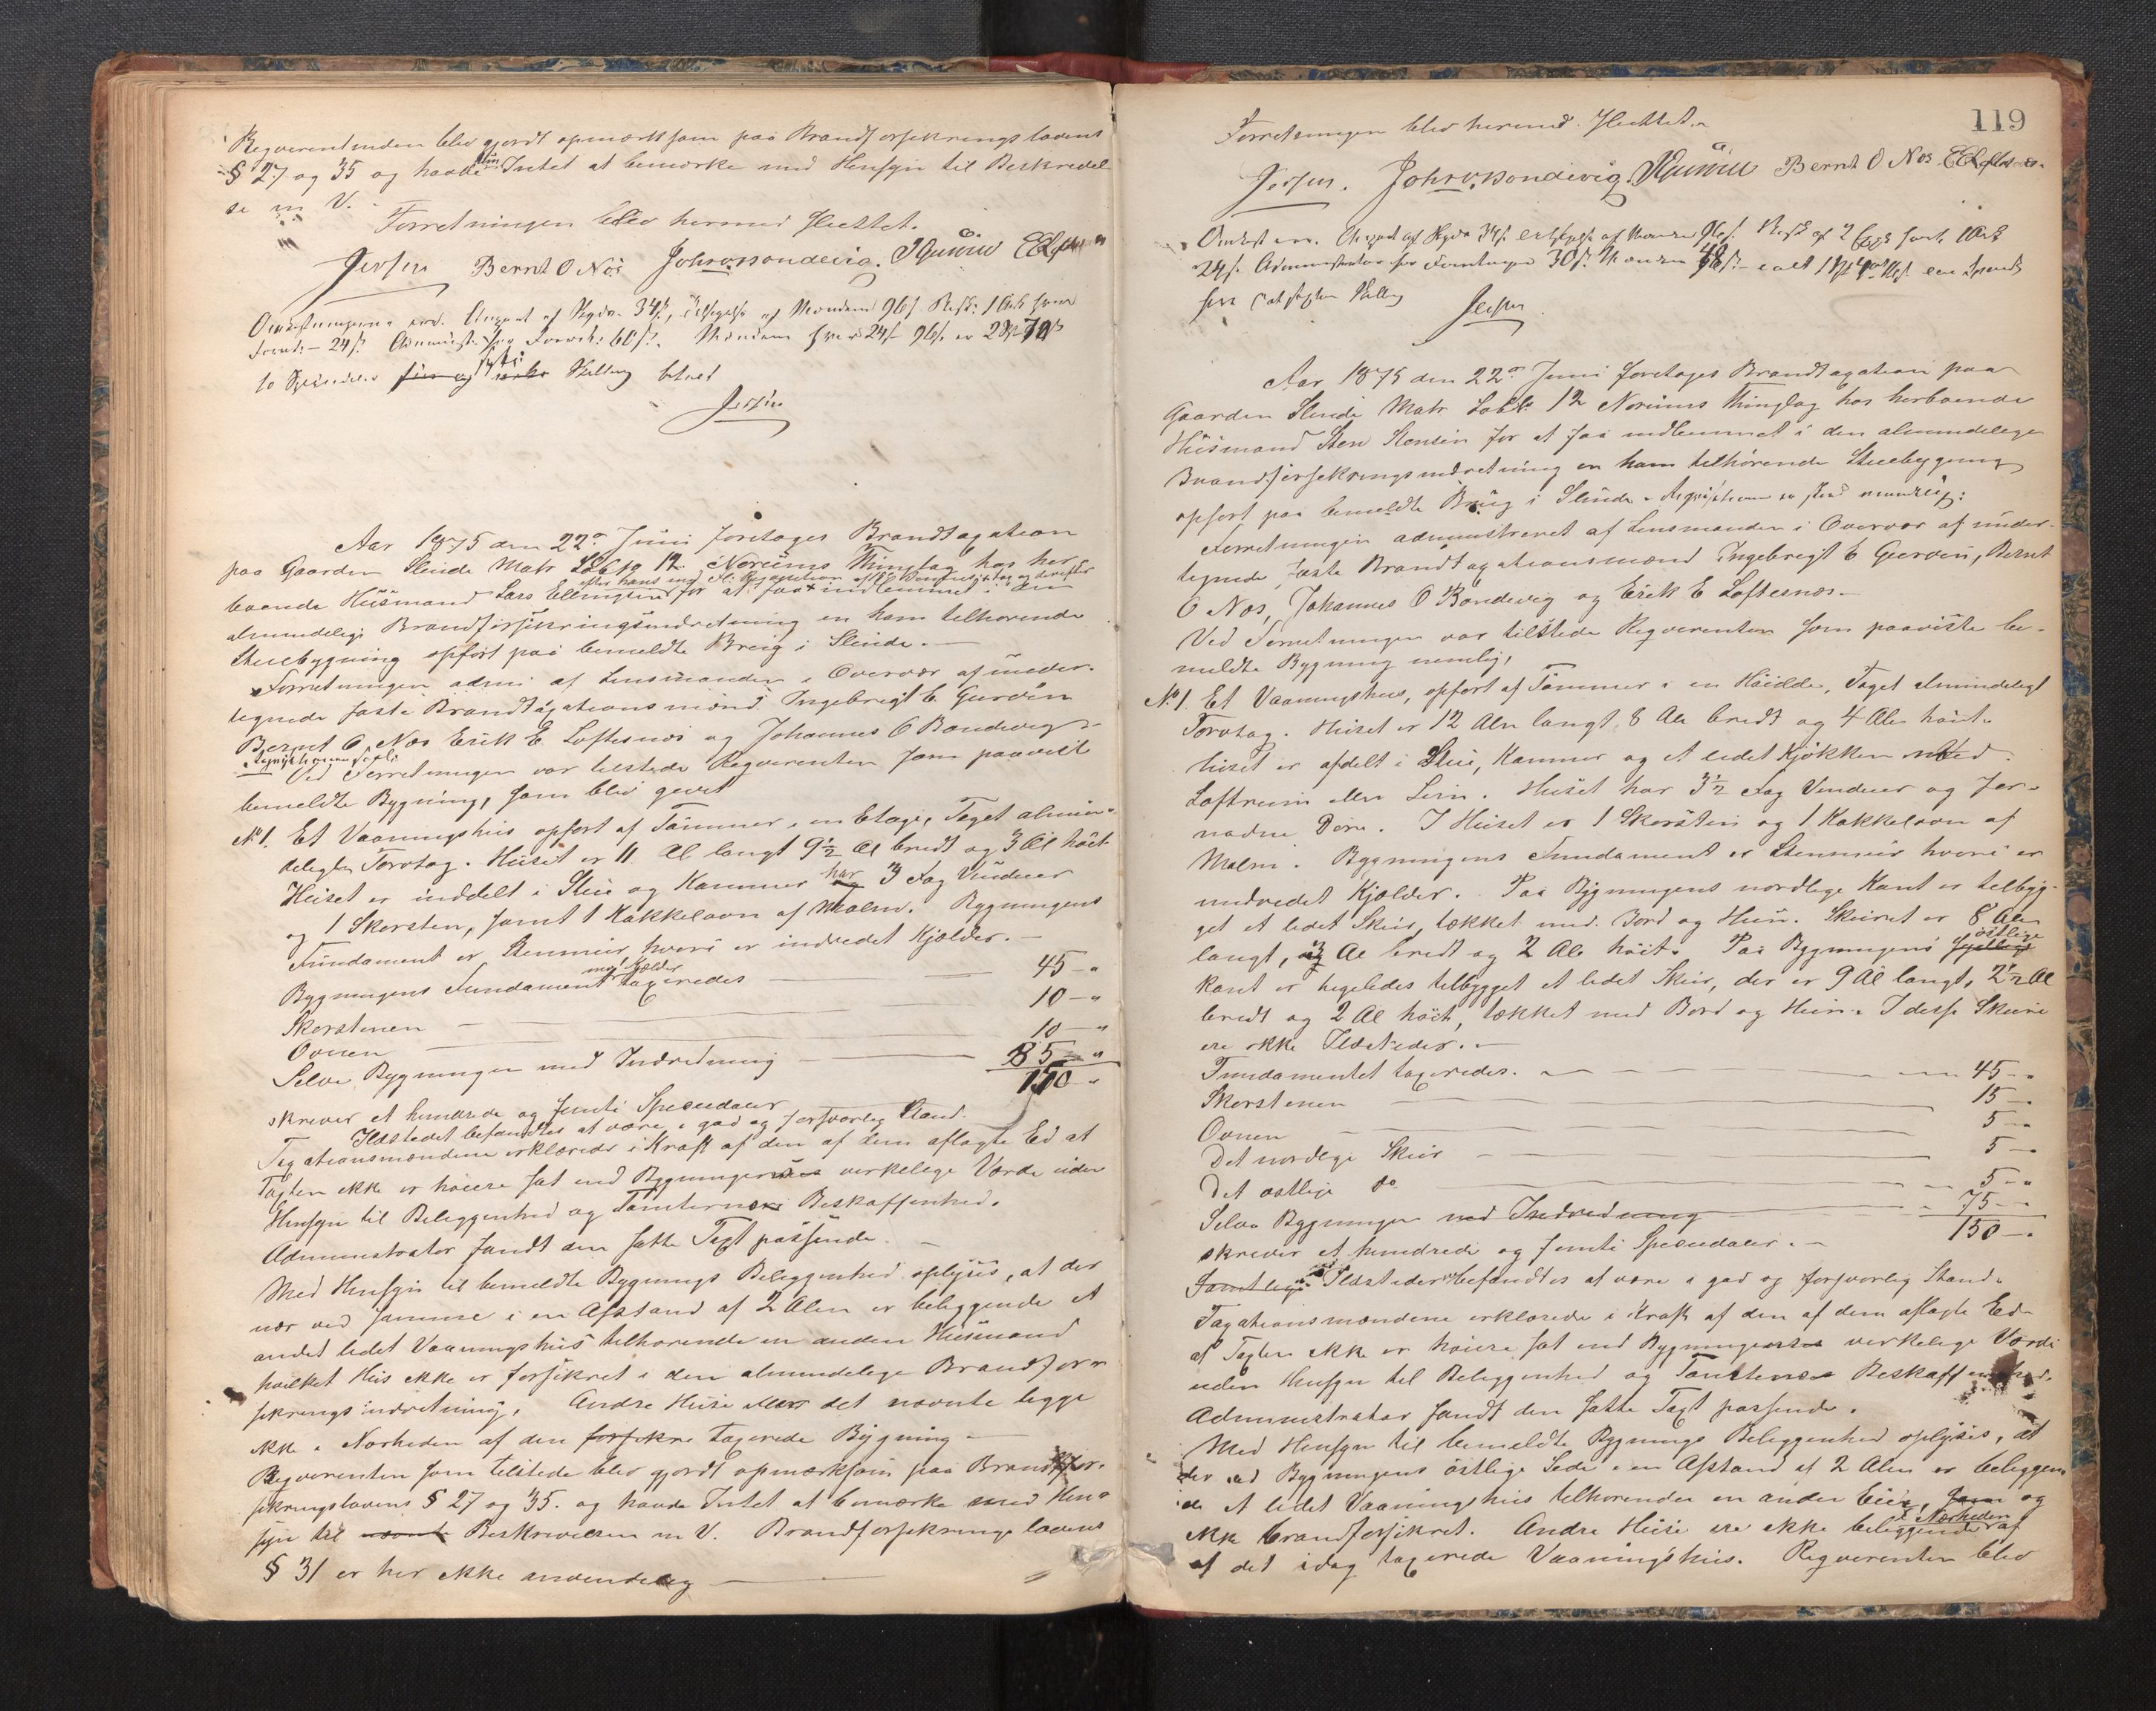 Reqverentinden blev gjordt opmærksom paa Brandforsekringslovens
§ 27 og 35 og havde Intet at bemærke med Hensyn til Beskrivel-
se m V.
Forretningen blev hermed Sluttet.
Jersin Bernt O Næs Joh OBondevig. IGurvin EELoftesnæs
Omkostningerne ere. Skyds. 34ß, af Mændene 96ß 1 Ark
24ß. Administr. for Forretn: 60ß. Mændene hver 24ß 96ß er 2 Spd 70ß
to Speciedaler Sytti Skilling betalt
Jersin
Aar 1875 den 22de Juni foretoges Brandtaxation
paa Gaarden Slinde Matr Løbno 12. Norums Thinglag hos her-
efter hans Reqvisition
boende Huusmand Lars Ellingsen for at faa indlemmet i den
almindelige Brandforsikringsindretning en ham tilhørende
Stuebygning opført paa bemeldte Brug i Slinde.
Forretningen admi af Lensmanden i Overvær af under-
tegnede faste Brandtaxationsmænd Ingebrigt E. Gurvin
Bernt O Næs Erik E Loftesnæs og Johannes O Bondevig
Ved Forretningen var tilstede Reqverenten som paaviste
bemeldte Bygning, som blev
No 1. Et Vaaningshus opført af Tømmer i en Etage, Taget almin-
deligt Torvtag. Huset er 11 Al langt 9½ Al bredt og 3 Al høit
Huset er inddelt i Stue og Kammer har 3 Fag Vinduer
og 1 Skorsten, samt 1 Kakkelovn af Malm. Bygningens
Fundament er Stenmur hvori er indredet Kjælder.
Bygningens Fundament med Kjælder taxeredes 45 — "
Skorstenen 10 — "
Ovnen 10 — "
Selve Bygningen med Indredning 85 — "
150 — "
skriver et hundrede og femti Speciedaler
Ildstedet befandtes at være i god og forsvarlig Stand.
Taxationsmændene erklærede i Kraft af den af dem aflagte Ed at
Taxten ikke er høiere sat end Bygningernes verkelige Værdi uden
Hensyn til Beliggenhed og Tomternes Beskaffenhed.
Administrator fandt den satte Taxt passende.
Med Hensyn til bemeldte Bygnings Beliggenhed oplyses, at der
nær ved samme i en Afstand af 2 Alen er beliggende et
andet lidet Vaaningshus tilhørende en anden Huusmand
hvilket Hus ikke er forsikret i den almindelige Brandfor-
sikringsindretning. Andre Huse end det nævnte ligge
ikke i Nærheden af den forsikre taxerede Bygning
Reqverenten som tilstede blev gjordt opmærksom paa Brandfor-
sikringslovens § 27 og 35. og havde Intet at bemærke med Hen-
syn til Beskrivelsen m V. Brandforsekringslovens
§ 31 er her ikke anvendelig
119
Forretningen blev hermed Sluttet.
Jersin. Joh OBondevig. IGurvin Bernt O Næs EELoftesnæs.
Omkost ere. Skyds 34ß af Mændene 96ß
24ß. Administrator for Forretningen 30ß Mændene 48ß
Skilling
Jersin
Aar 1875 den 22de Juni foretoges Brandtaxation paa
Gaarden Slinde Matr Løb 12 Norums Thinglag hos herboende
Huusmand Sten Stensen for at faa indlemmet i den almindelige
Brandforsekringsindretning en ham tilhørende Stuebygning
opført paa bemeldte Brug i Slinde.
Forretningen administreret af Lensmanden i Overvær af under-
tegnede faste Brandtaxationsmænd Ingebrigt E Gurvin, Bernt
O Næs, Johannes O Bondevig og Erik E Loftesnæs.
Ved Forretningen var tilstede Reqverenten som paaviste be-
meldte Bygning nemlig,
No 1. Et Vaaningshus, opført af Tømmer i en Høide, Taget almindeligt
Torvtag. Huset er 12 Aln langt 8 Aln bredt og 4 Aln høit.
huset er afdelt i Stue, Kammer og et lidet Kjøkken med
Loftrum over. Huset har 3½ Fag Vinduer og for-
nødne Døre. I Huset er 1 Skorsten og 1 Kakkelovn af
Malm. Bygningens Fundament er Stenmur hvori er
indredet Kjælder. Paa Bygningens nordlige Kant er tilbyg-
get et lidet Skur tækket med Bord og Hun. Skuret er 8 Aln
langt, 3 Al bredt og 2 Aln høit. Paa Bygningens østlige
kant er ligeledes tilbygget et lidet Skur, der er 9 Al langt, 2½ Al
bredt og 2 Al høit, tækket med Bord og Hun. I disse Skure
ere ikke Ildsteder.
Fundamentet taxeredes. 45 — "
Skorstenen 15 — "
Ovnen 5 — "
Det nordlige Skur 5 — "
Det østlige do 5 — "
Selve Bygningen med Indredning 75 — "
150 — "
skriver et hundrede og femti Speciedaler.
Samtlige Ildsteder befandtes at være i god og forsvarlig Stand.
Taxationsmændene erklærede i Kraft af den af dem aflagte Ed
at Taxten ikke er høiere sat end Bygningernes verkelige Værdi
uden Hensyn til Beliggenhed og Tomternes Beskaffenhed.
Administrator fandt den satte Taxt passende.
Med Hensyn til bemeldte Bygnings Beliggenhed oplyses, at
der ved Bygningens østlige Side i en Afstand af 2 Alen er beliggen-
de et lidet Vaaningshus tilhørende en anden Eier, som og
ikke brandforsikret. Andre Huse ere ikke beliggende i Nærheden af
af det idag taxerede Vaaningshus. Reqverenten blev